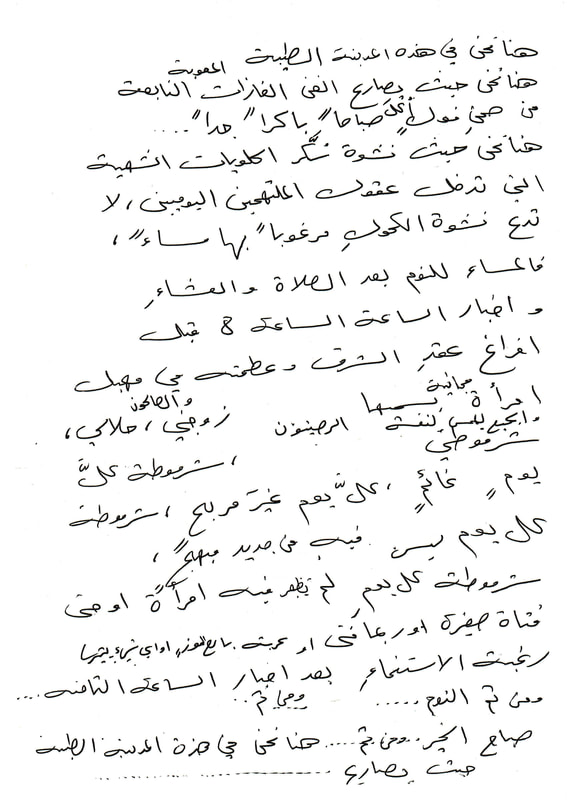 هنا نحن في هذه المدينة الطيبة
المعوية
هنا نحن حيث يصارع الفتى الغازات النابعة
من صحن فول أكله صباحا" باكرا" جدا".....
هنا نحن حيث نشوة سُكَّر الحلويات الشهية
التي تدخل عقول الملتهمين اليوميين، لا
تدع نشوة الكحول مرغوبا" بها مساء"،
فالمساء للنوم بعد الصلاة والعشاء
و اخبار الساعة الساعة 8 قبل
افراغ عقد الشرق وعظمته في مهبل
امرأة مجانية يسميها
والصالحون
الرصينون زوجتي، حلالي،
شرموطتي
، شرموطة كلَّ
يومٍ غائمٍ، كلَّ يوم غيرَ مربح، شرموطة
كل يوم ليس فيه من جديد مبهج"،
شرموطة كل يومٍ لم تظهر فيه امرأةً او حتى
فتاة صغيرة او ربما فتى او عربة بائع او اي شيء يثير
رغبة الاستنماءِ بعد اخبار الساعة الثامنة....
ومن ثم النوم ..... ومن ثم..
صباح الخير.. ومن ثم.... هنا نحن في هذه المدينة الطيبة
حيث يصارع ....................